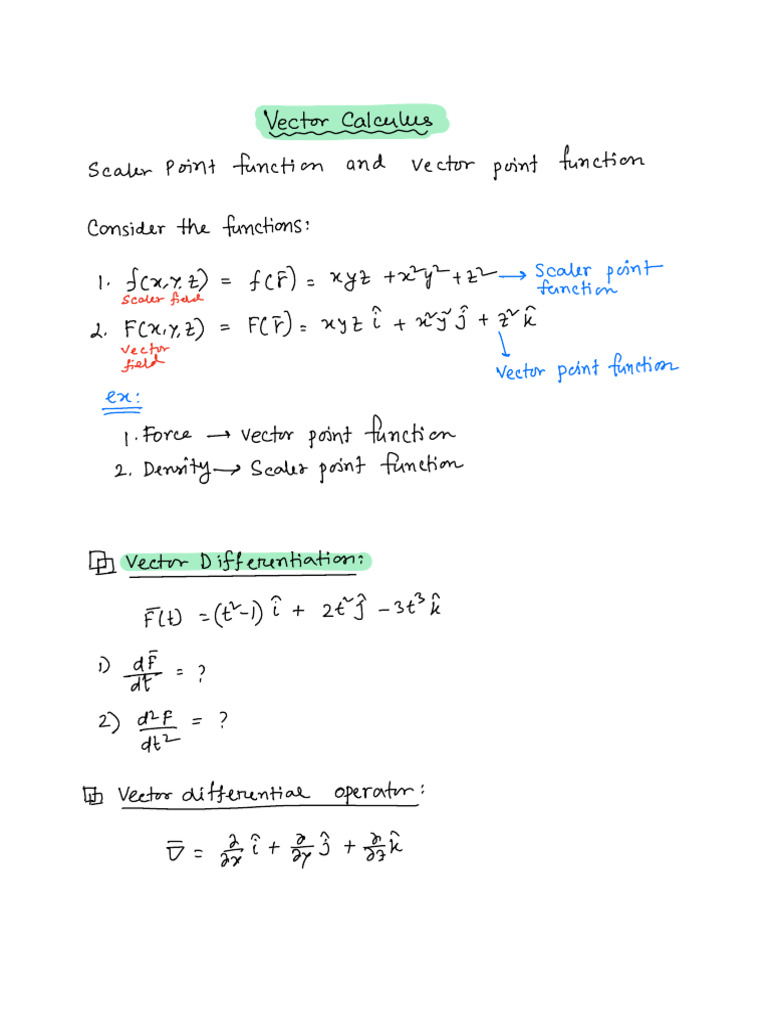 Vector Calculus
Scaler Point function and vector point function
Consider the functions:
1. f(x,y,z) = f(r̄) = xyz + x²y² + z² → Scaler point function
Scaler field
2. F(x,y,z) = F(r̄) = xyz î + x²y² ĵ + z² k̂
vector field
↓
vector point function
ex:
1. Force → vector point function
2. Density → Scaler point function
Vector Differentiation:
F̄(t) = (t²-1) î + 2t² ĵ - 3t³ k̂
1) dF̄/dt = ?
2) d²F/dt² = ?
Vector differential operator:
∇̄ = ∂/∂x î + ∂/∂y ĵ + ∂/∂z k̂